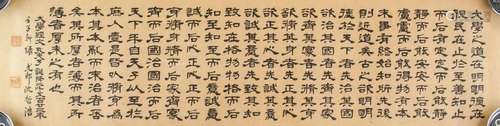 大學之道在明明德在
親民在止於至善知止
而后有定定而后能靜
靜而后能安安而后能
慮慮而后能得物有本
末事有終始知所先後
則近道矣古之欲明明
德於天下者先治其國
欲治其國者先齊其家
欲齊其家者先脩其身
欲脩其身者先正其心
欲正其心者先誠其意
欲誠其意者先致其知
致知在格物物格而后
知至知至而后意誠意
誠而后心正心正而后
身脩身脩而后家齊家
齊而后國治國治而后
天下平自天子以至於
庶人壹是皆以脩身為
本其本亂而末治者否
矣其所厚者薄而其所
薄者厚未之有也